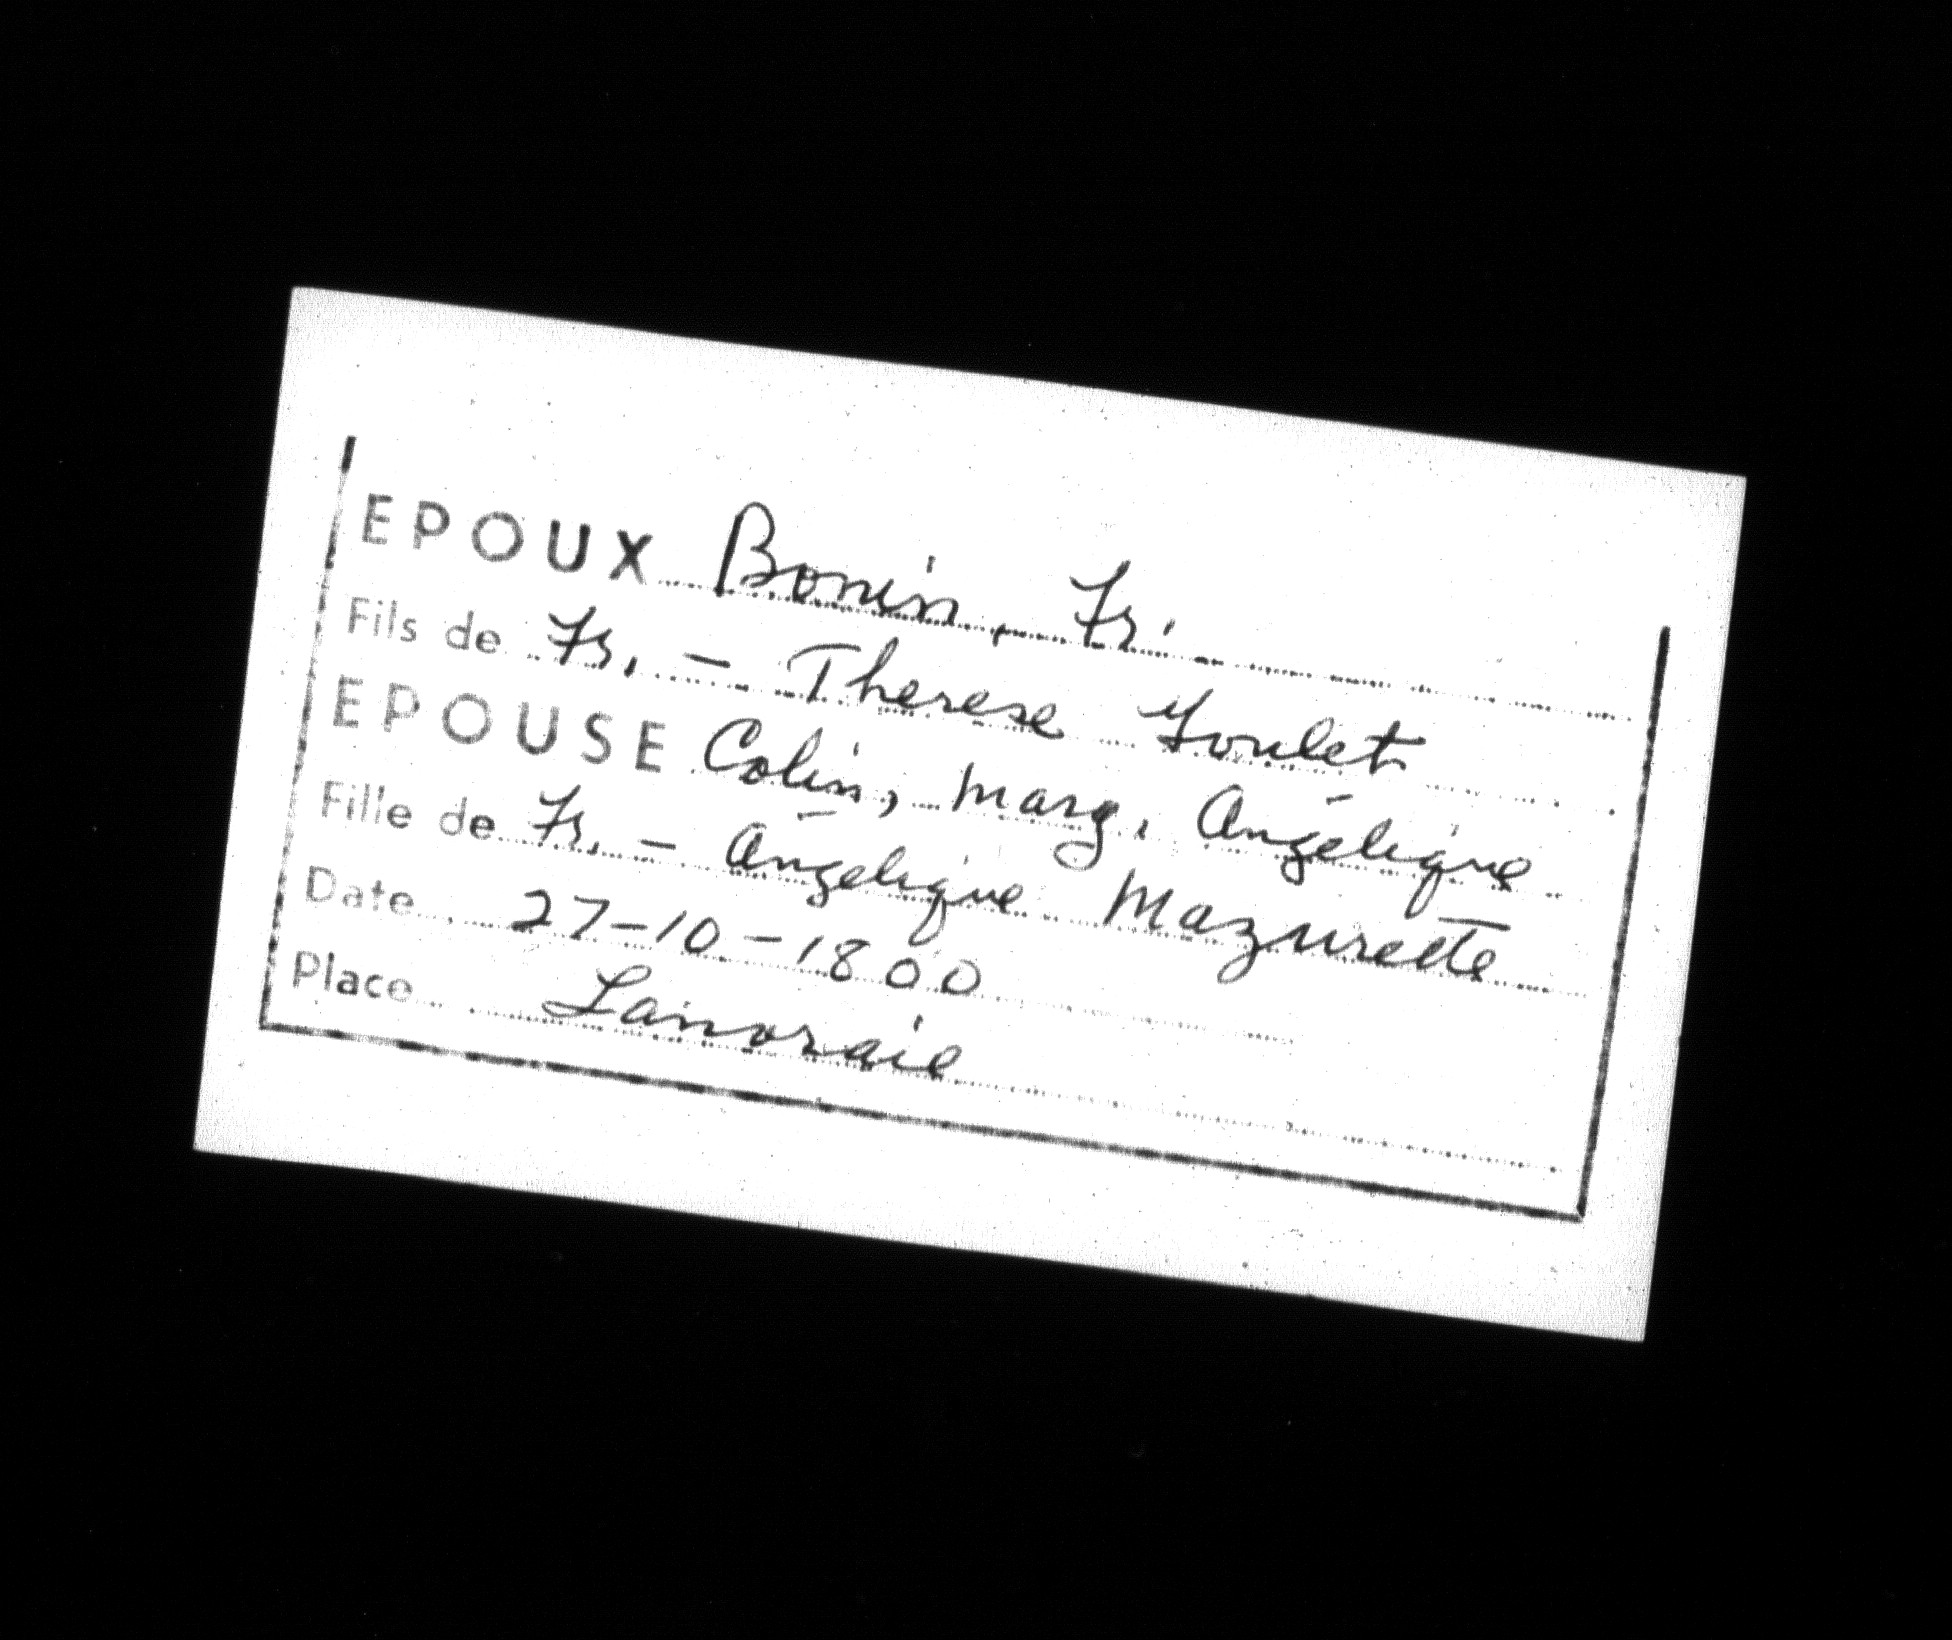 EPOUX Bonin, Fr.
Fils de Fr. - Therese Goulet
EPOUSE Colin, Marg. Angélique
Fille de Fr. - Angélique Mazurette
Date 27-10-1800
Place Lanoraie